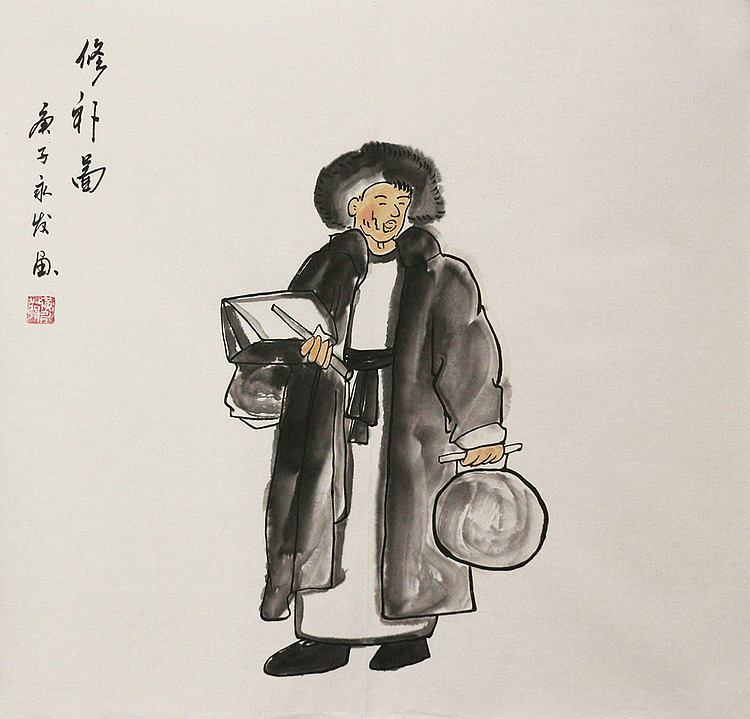 修补图
庚子永发画